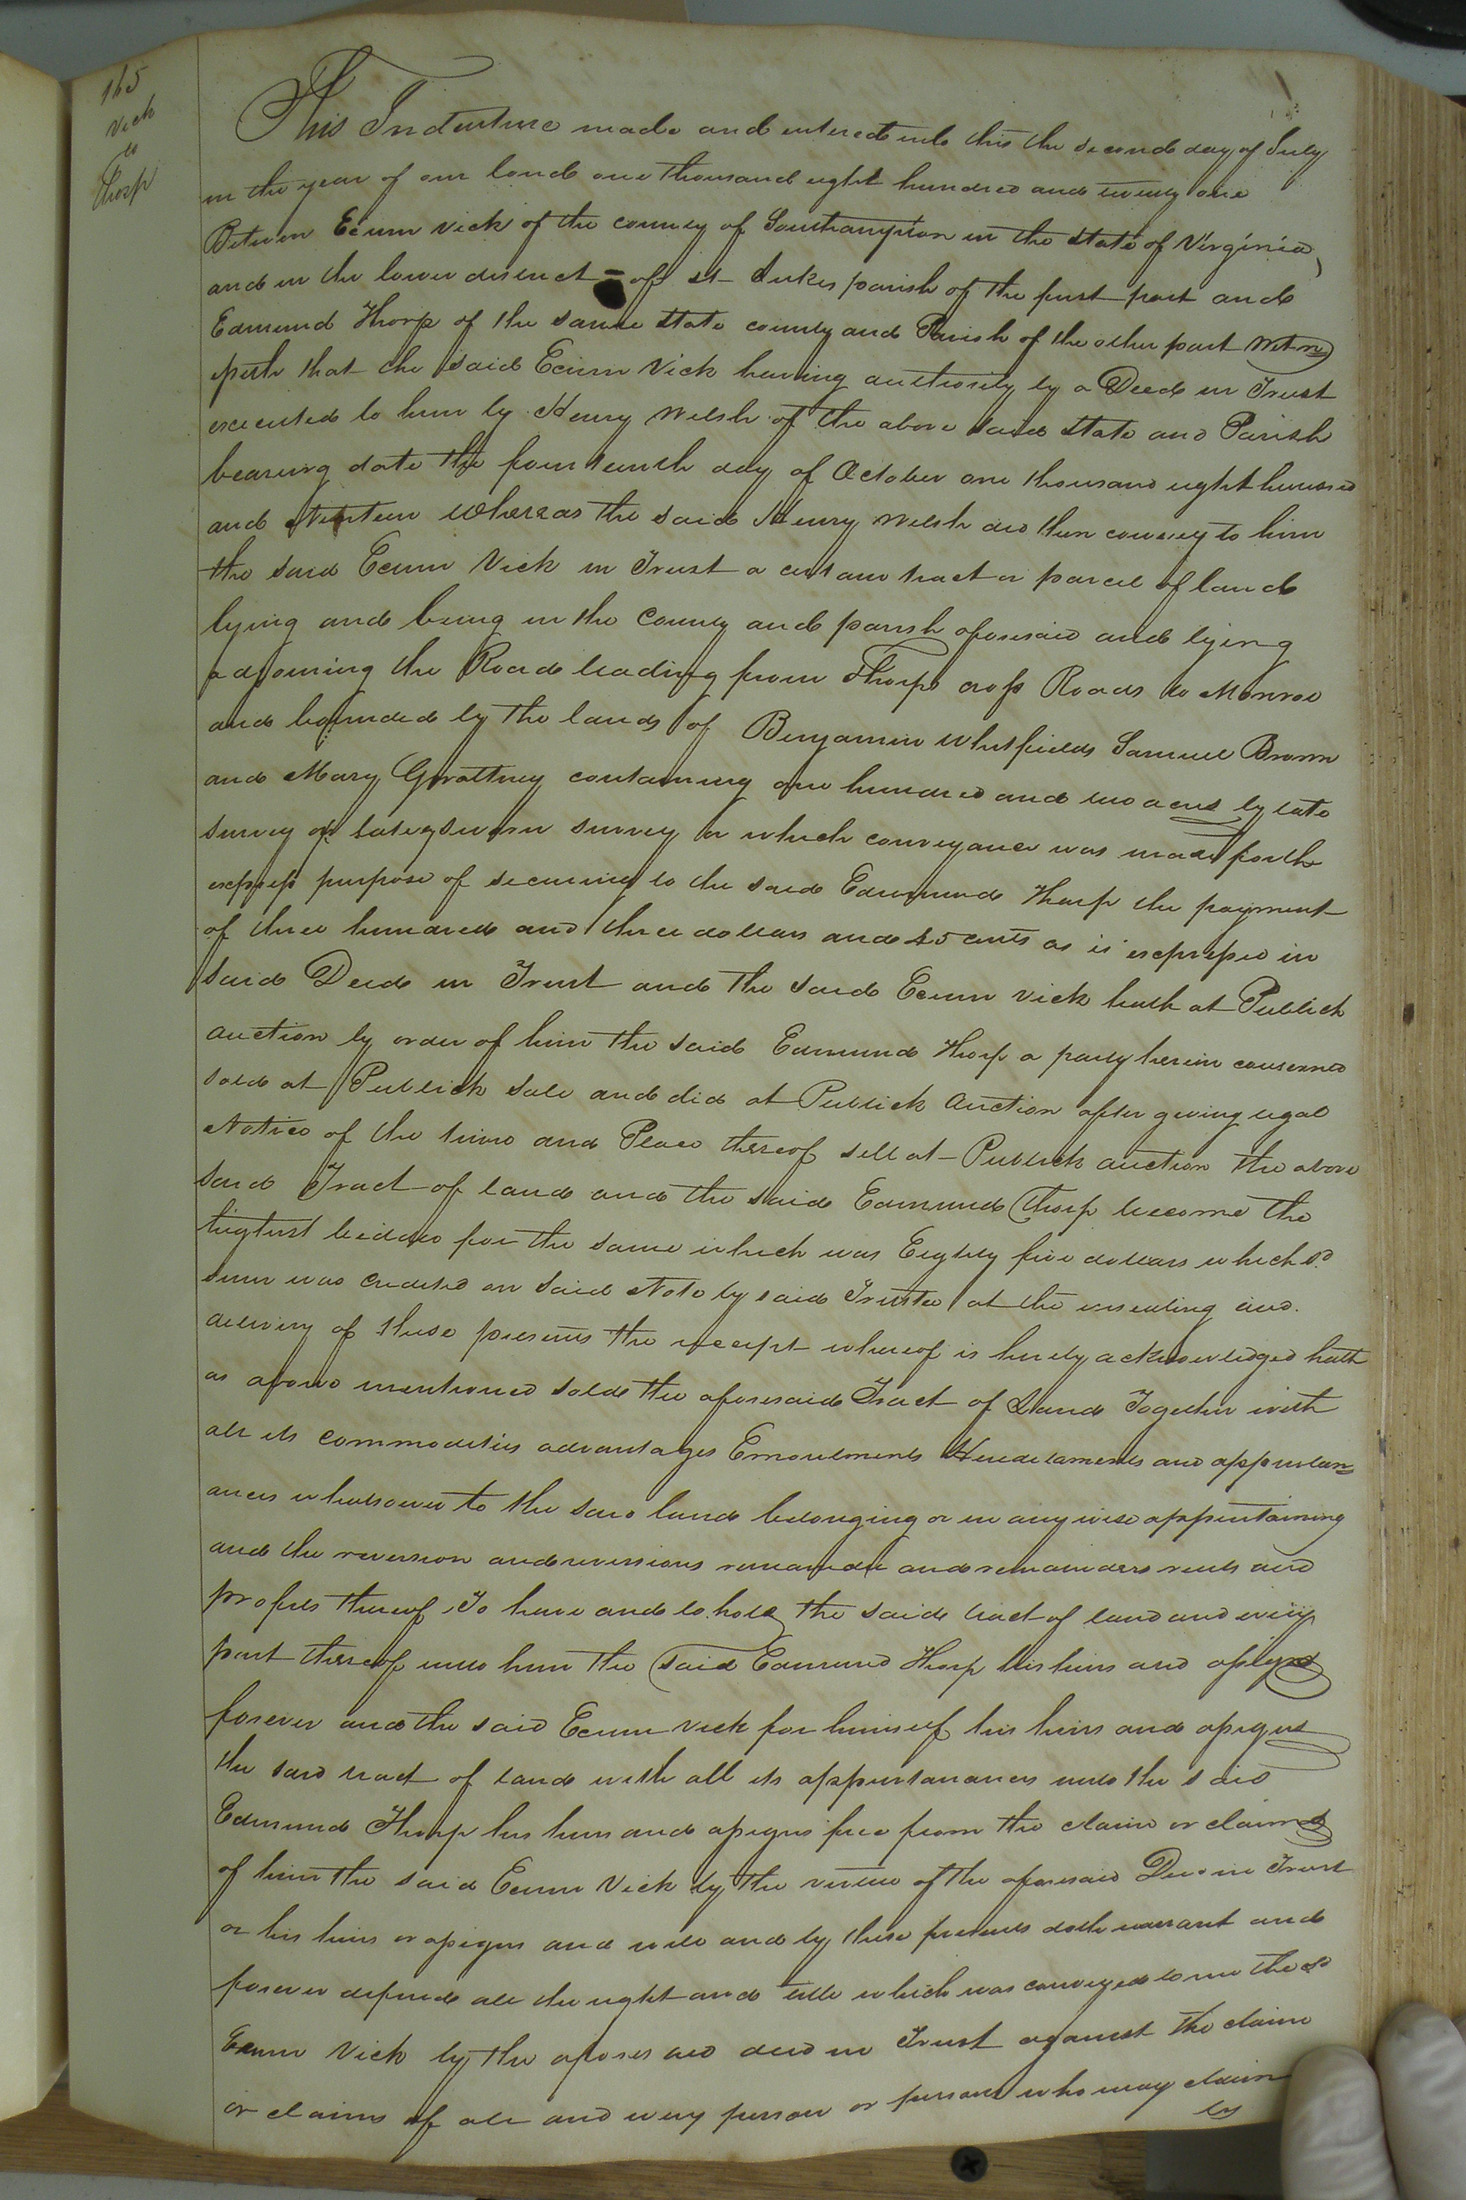 165
Vick
to
Thorp
This Indenture made and entered into this the second day of July
in the year of our lord one thousand eight hundred and twenty one
Between Exum Vick of the county of Southampton in the state of Virginia,
and in the lower district = of St Lukes parish of the first part and
Edmund Thorp of the same state county and Parish of the other part Witn
esseth that the said Exum Vick having authority by a Deed in Trust
executed to him by Henry Welsh of the above said state and Parish
bearing date the fourteenth day of October one thousand eight hundred
and Nineteen Whereas the said Henry Welsh did then convey to him
the said Exum Vick in Trust a certain tract or parcel of land
lying and being in the County and parish aforesaid and lying
adjoining the Road leading from Thorps cross Roads to Monroe
and bounded by the lands of Benjamin Whitfields Samuel Brown
and Mary Gwaltney containing one hundred and two acres by late
survey or survey which conveyance was made for the
express purpose of securing to the said Edmund Thorp the payment
of three hundred and three dollars and 45 cents as is expressed in
said Deed in Trust and the said Exum Vick hath at Publick
auction by order of him the said Edmund Thorp a party herein concerned
sold at Publick sale and did at Publick Auction after giving legal
Notice of the time and Place thereof sell at Publick auction the above
said Tract of land and the said Edmund Thorp become the
highest bidder for the same which was Eighty five dollars which sd
sum was credited on said Note by said Trustee at the ensealing and
delivery of these presents the receipt whereof is hereby acknowledged hath
as above mentioned sold the aforesaid Tract of Land Together with
all its commodities advantages Emoulments Hereditaments and appurtan
ances whatsoever to the said land belonging or in any wise appertaining
and the reversion and reversions remainder and remainders rents and
profits thereof, To have and to hold the said tract of land and every
part thereof unto him the said Edmund Thorp his heirs and assigns
forever and the said Exum Vick for himself his heirs and assigns
the said tract of land with all its appurtanances unto the said
Edmund Thorp his heirs and assigns free from the claim or claims
of him the said Exum Vick by the virtue of the aforesaid Deed in Trust
or his heirs or assigns and will and by these presents doth warrant and
forever defend all the right and title which was conveyed to me the sd
Exum Vick by the aforesaid deed in Trust against the claim
or claims of all and every person or persons who may claim
by